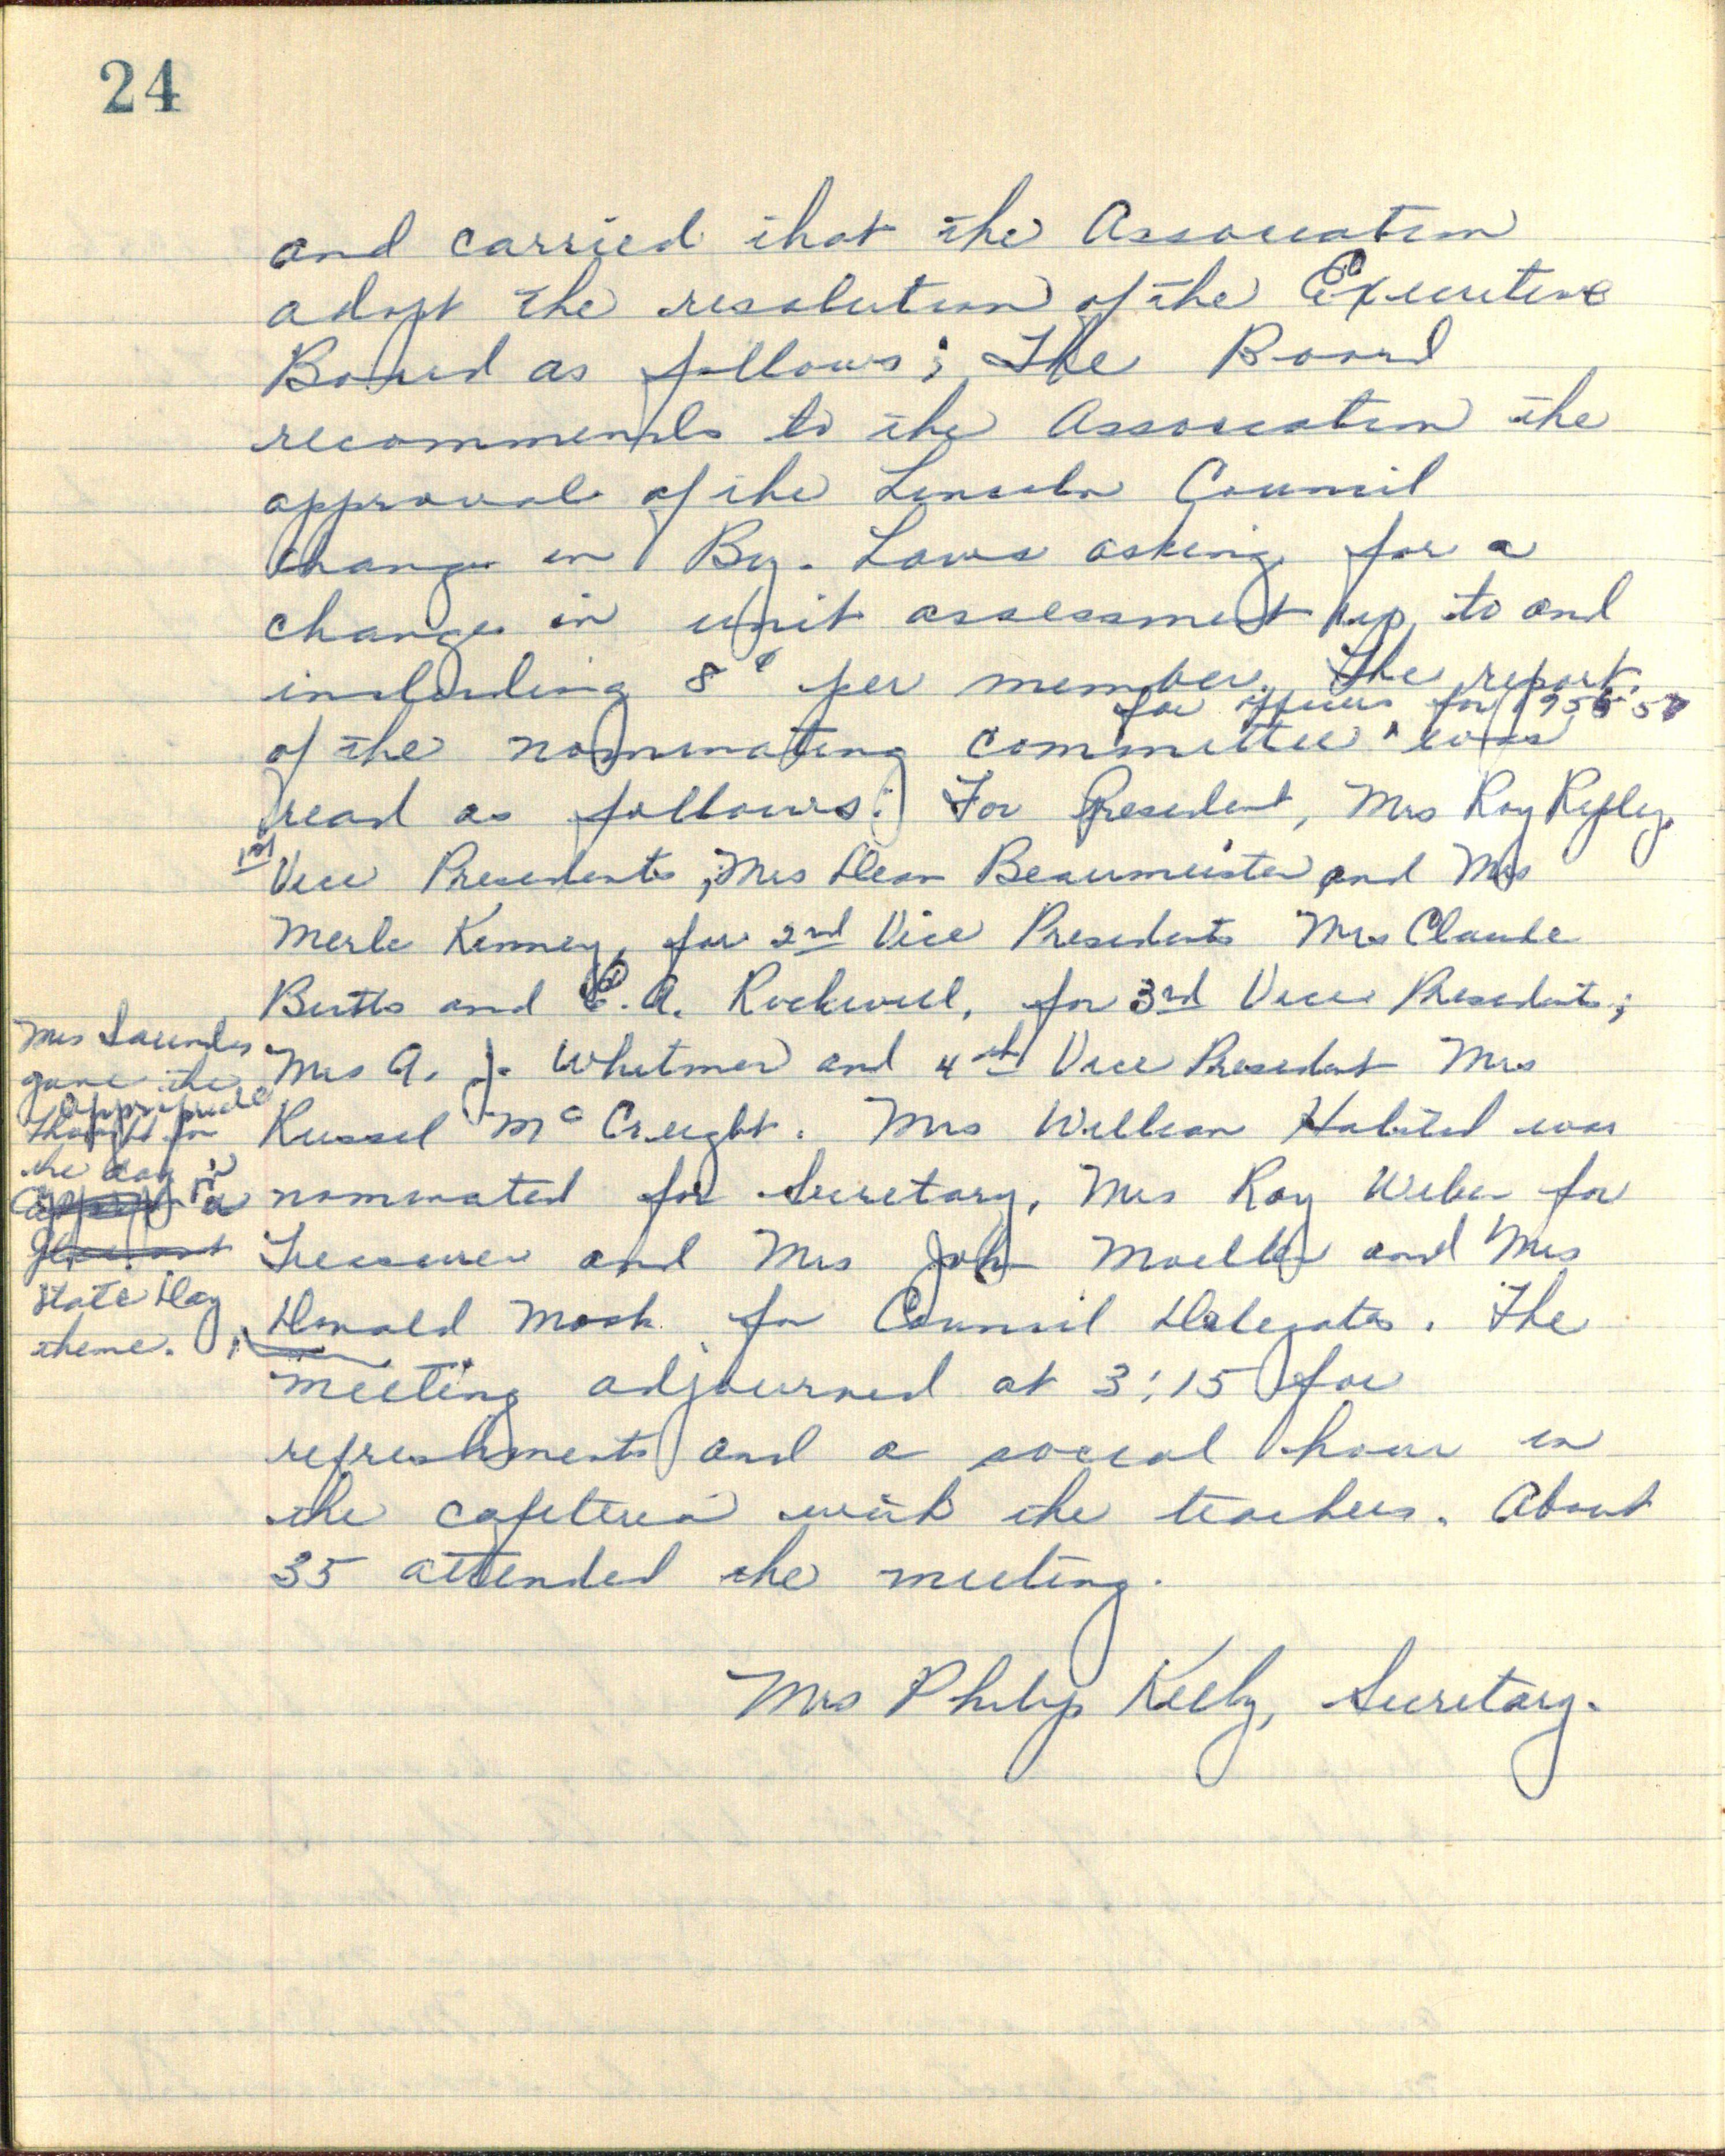 24
and carried that the Association
adopt the resolution of the Executive
Board as follows; The Board
recommends to the Association the
approval of the Lincoln Council
change in By-Laws asking for a
change in unit assessment up to and
including 8¢ per member. The report
for officers for 1956 57
of the nominating committee ^ was
read as follows: For President, Mrs Roy Ripley,
1st
Vice Presidents, Mrs Dean Beaumeister and Mrs
Merle Kenney, for 2nd Vice Presidents Mrs Claude
Butts and C. A. Rockwell, for 3rd Vice Presidents;
Mrs A. J. Whitmer and 4th Vice President Mrs
Russel McCreight. Mrs William was
nominated for Secretary, Mrs Roy Weber for
Treasurer and Mrs John Moeller and Mrs
Donald Mook for Council Delegates. The
meeting adjourned at 3:15 for
refreshments and a social hour in
the cafeteria with the teachers. About
35 attended the meeting.
Mrs Philip Kelly, Secretary.
Mrs Saunders
gave the
appropriate
thought for
the day in
a
State Day
theme.